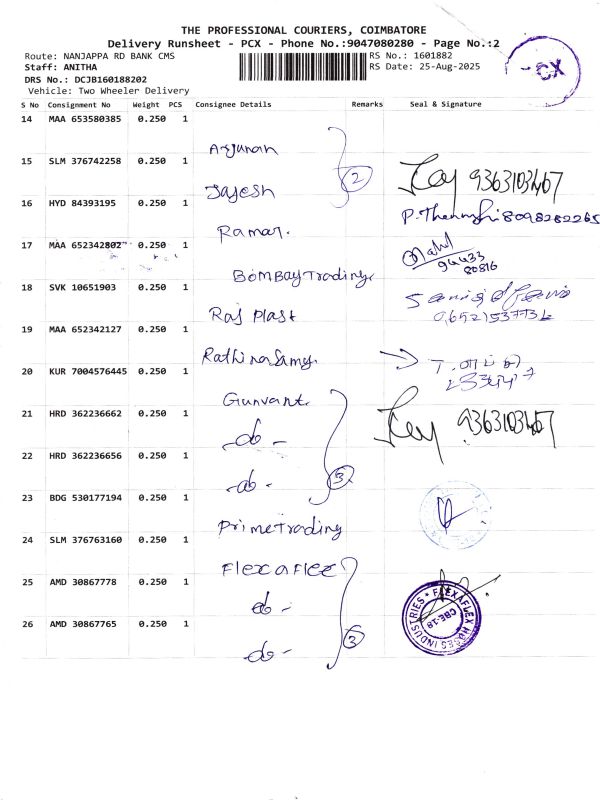 THE PROFESSIONAL COURIERS, COIMBATORE
Delivery Runsheet - PCX - Phone No.:9047080280 - Page No.:2
Route: NANJAPPA RD BANK CMS RS No.: 1601882
Staff: ANITHA RS Date: 25-Aug-2025
DRS No.: DCJB160188202
Vehicle: Two Wheeler Delivery
CX
S No Consignment No Weight PCS Consignee Details Remarks Seal & Signature
14 MAA 653580385 0.250 1
Arjunan
15 SLM 376742258 0.250 1
2
9363103467
Jayesh
16 HYD 84393195 0.250 1
8098282265
Raman.
17 MAA 652342802 0.250 1
94433
80816
Bombay Trading
18 SVK 10651903 0.250 1
Raj Plast
19 MAA 652342127 0.250 1
Rathinasamy.
20 KUR 7004576445 1 0.250 1
Gunvant
21 HRD 362236662 0.250 1
9363103467
-do-
22 HRD 362236656 0.250 1
-do-
3
23 BDG 530177194 0.250 1
Prime Trading
24 SLM 376763160 0.250 1
Flexaflex
25 AMD 30867778 0.250 1
-do-
FLEXAFLEX HOSES INDUSTRIES
CBE-18
26 AMD 30867765 0.250 1
3
-do-